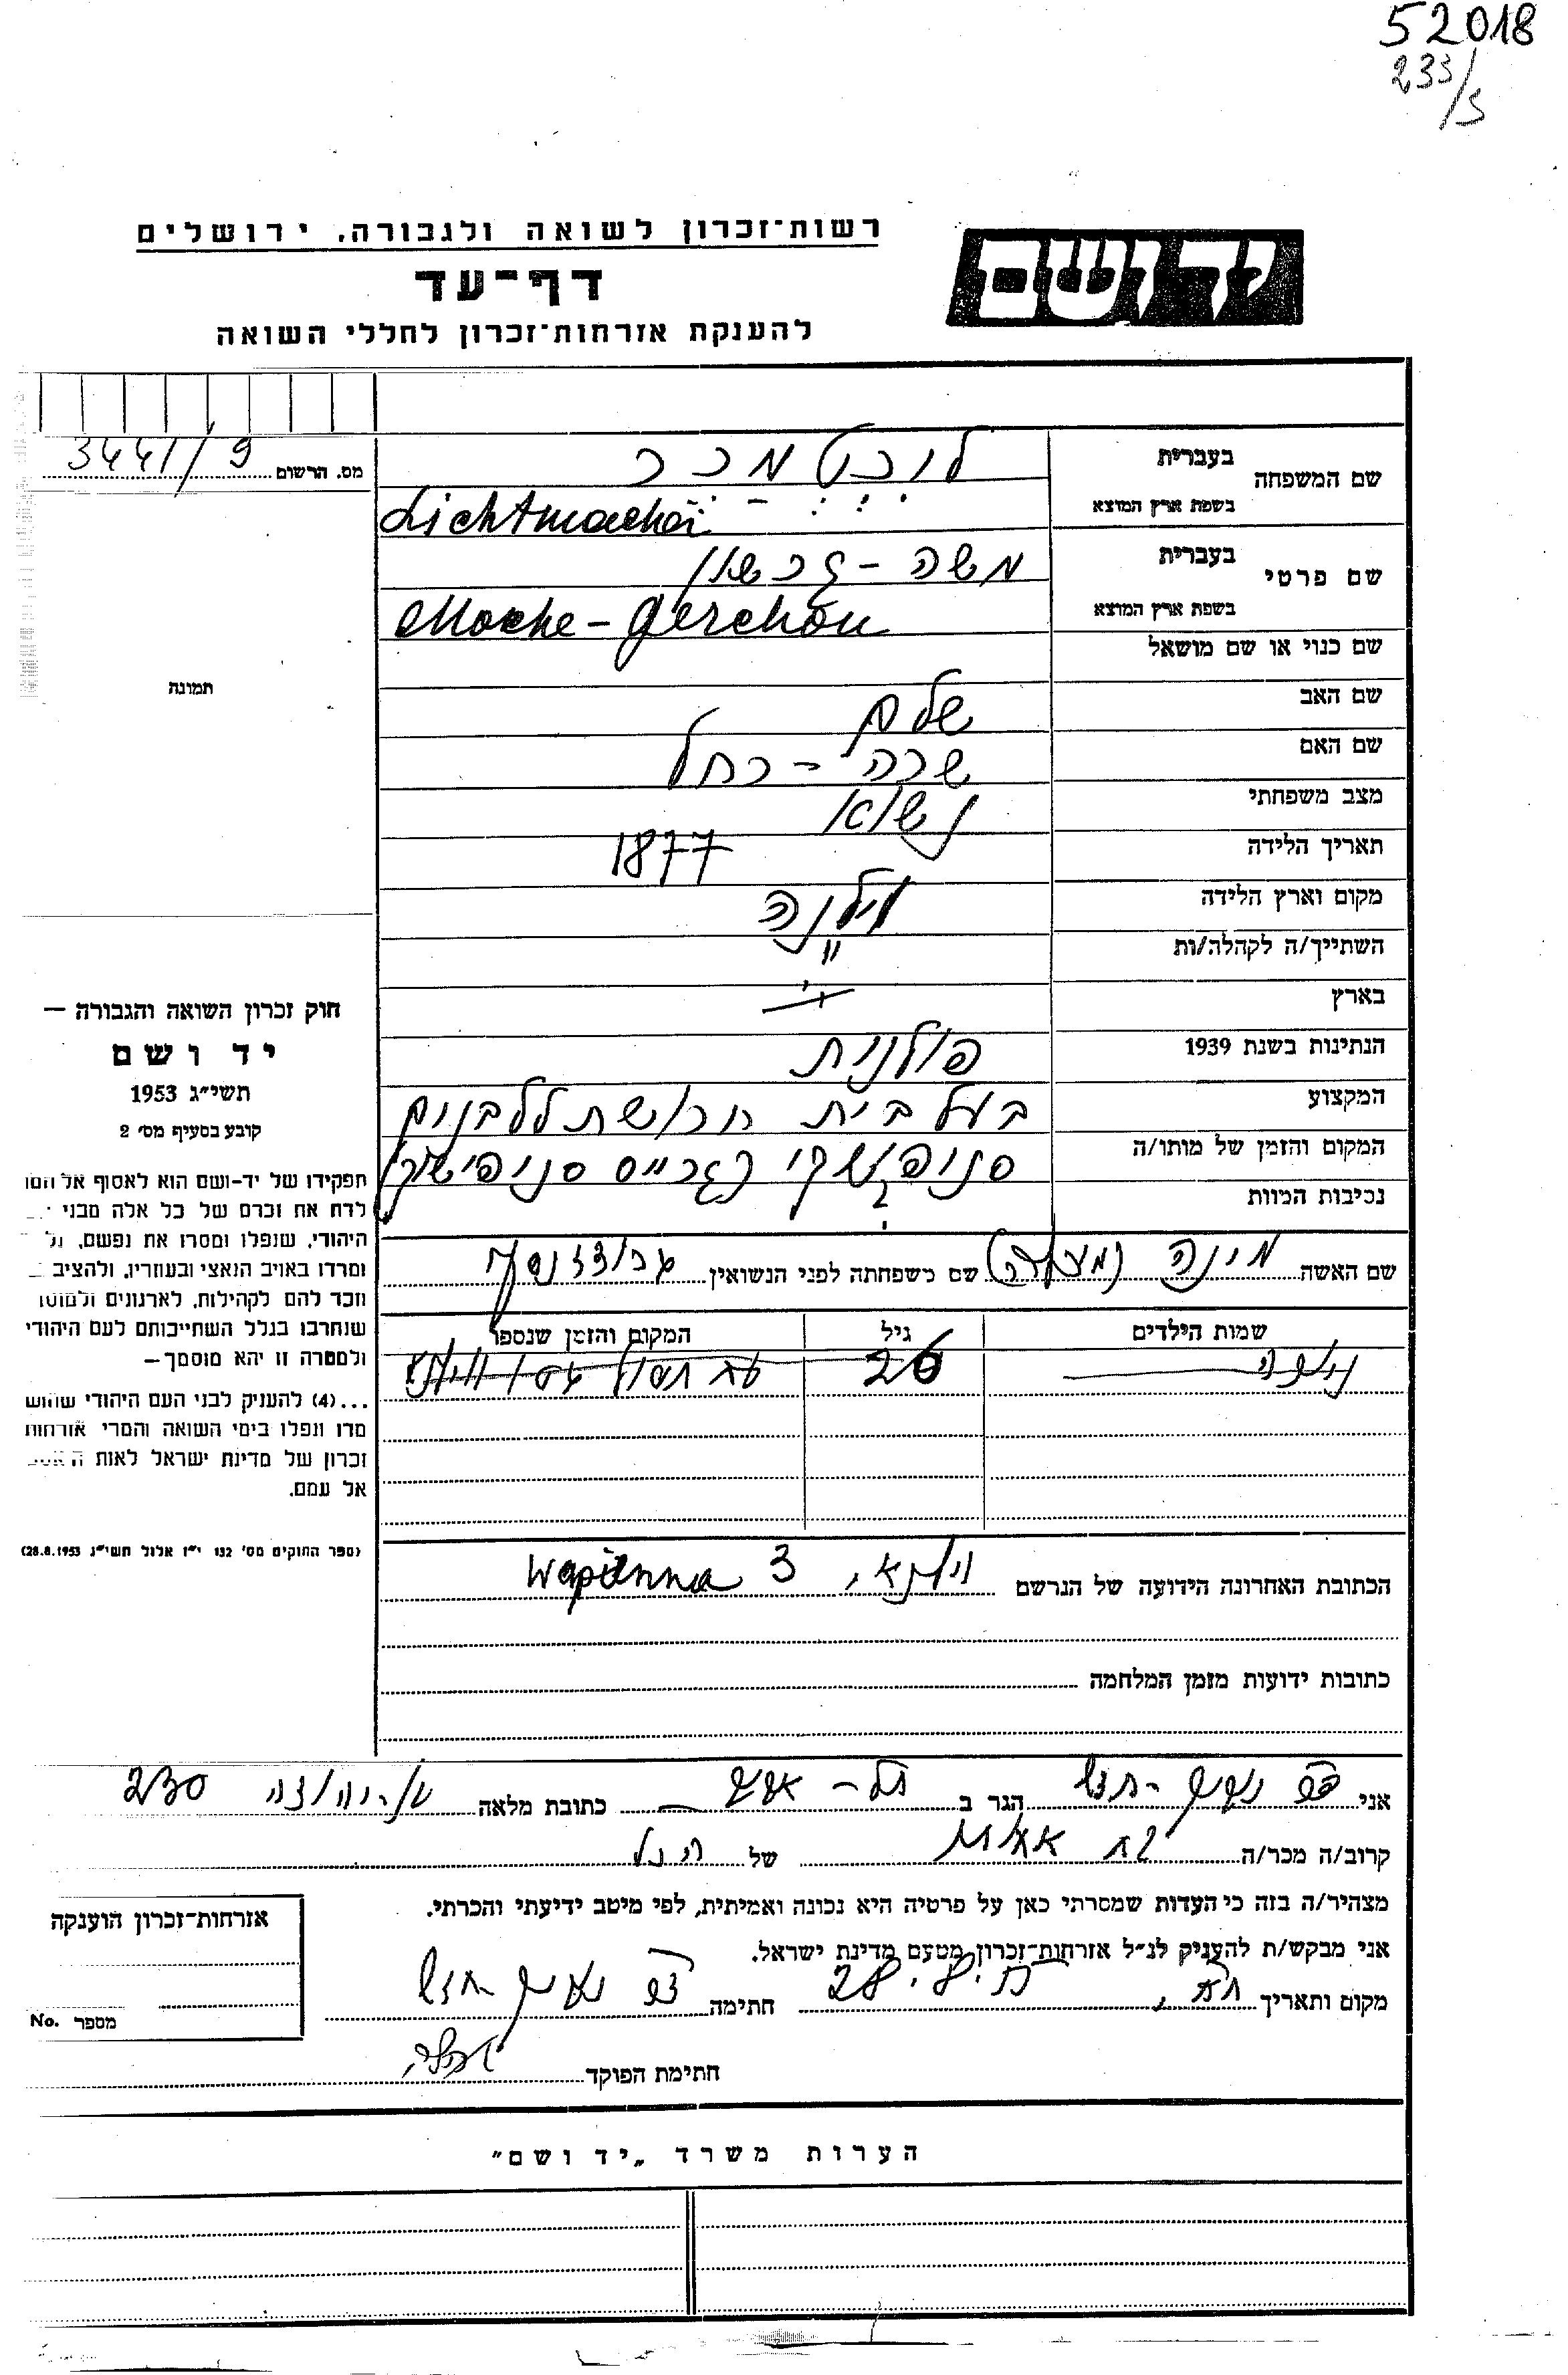 52018
233/5
רשות־זכרון לשואה ולגבורה, ירושלים
יד ושם
דף־עד
להענקת אזרחות־זכרון לחללי השואה
מס. הרשום 3441/9
שם המשפחה
בעברית ליכטמכר
בשפת ארץ המוצא Lichtmacher
שם פרטי
בעברית משה - גרשון
בשפת ארץ המוצא Moche - Gerchon
שם כנוי או שם מושאל
שם האב שלם
שם האם שרה - רחל
מצב משפחתי נשוא
תאריך הלידה 1877
מקום וארץ הלידה וילנה
השתייך/ה לקהלה/ות "
בארץ
הנתינות בשנת 1939 פולנית
המקצוע בעל בית חרושת ללבנים
המקום והזמן של מותו/ה
נסיבות המוות
שם האשה מינה שם משפחתה לפני הנשואין
שמות הילדים
גיל
המקום והזמן שנספו
26
הכתובת האחרונה הידועה של הנרשם וילנא, Wapienna 3
כתובות ידועות מזמן המלחמה
תמונה
חוק זכרון השואה והגבורה —
יד ושם
תשי״ג 1953
קובע בסעיף מס׳ 2
תפקידו של יד־ושם הוא לאסוף אל
לדת את זכרם של כל אלה מבני
היהודי, שנפלו ומסרו את נפשם,
ומרדו באויב הנאצי ובעוזריו, ולהציב
וזכר להם לקהילות, לארגונים
שנחרבו בגלל השתייכותם לעם היהודי
ולמטרה זו יהא מוסמך—
...(4) להעניק לבני העם היהודי
מדו ונפלו בימי השואה והמרי אזרחות
זכרון של מדינת ישראל לאות
אל עמם.
(ספר החוקים מס׳ 132 י״ז אלול תשי״ג 28.8.1953)
אני הגר ב תל - אביב כתובת מלאה בן-יהודה 230
קרוב/ה מכר/ה של הנ"ל
מצהיר/ה בזה כי העדות שמסרתי כאן על פרטיה היא נכונה ואמיתית, לפי מיטב ידיעתי והכרתי.
אני מבקש/ת להעניק לנ״ל אזרחות־זכרון מטעם מדינת ישראל.
מקום ותאריך חתימה
חתימת הפוקד
אזרחות־זכרון הוענקה
מספר No.
הערות משרד „יד ושם״